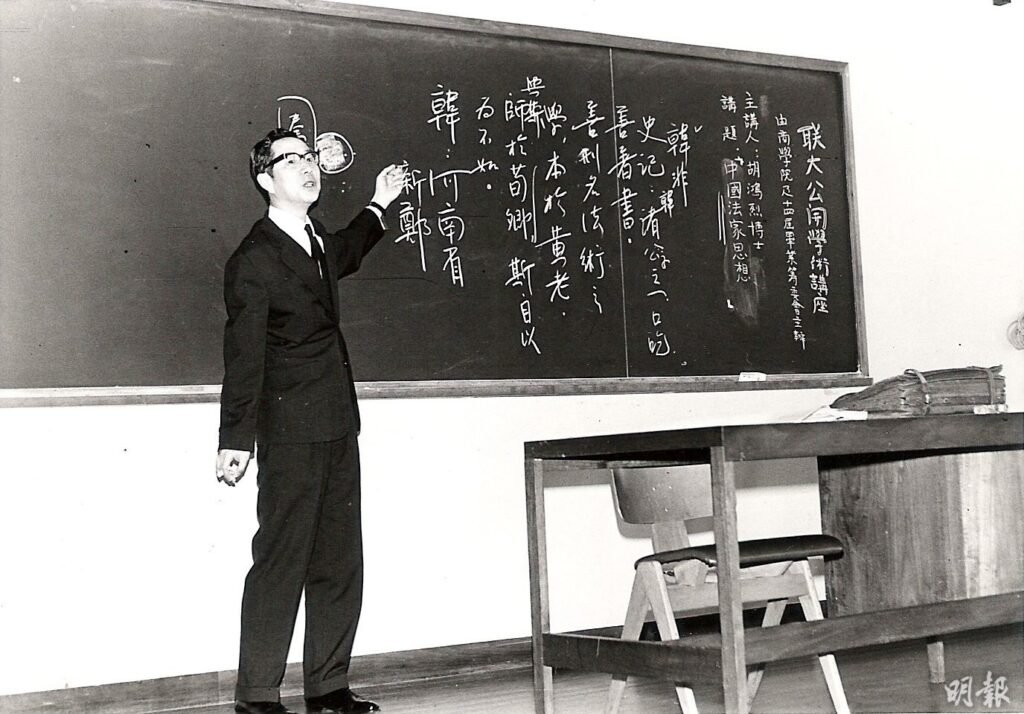 联大公開學術講座
由商學院及十四屆畢業籌委會主辦
主講人：胡鴻烈博士
講題：中國法家思想
韓非
史記：韓諸公子，口吃。
善著書。
善刑名法術之
學，本於黃老。
與
師於荀卿，斯自以
為不如。
韓：河南省
新鄭
明報